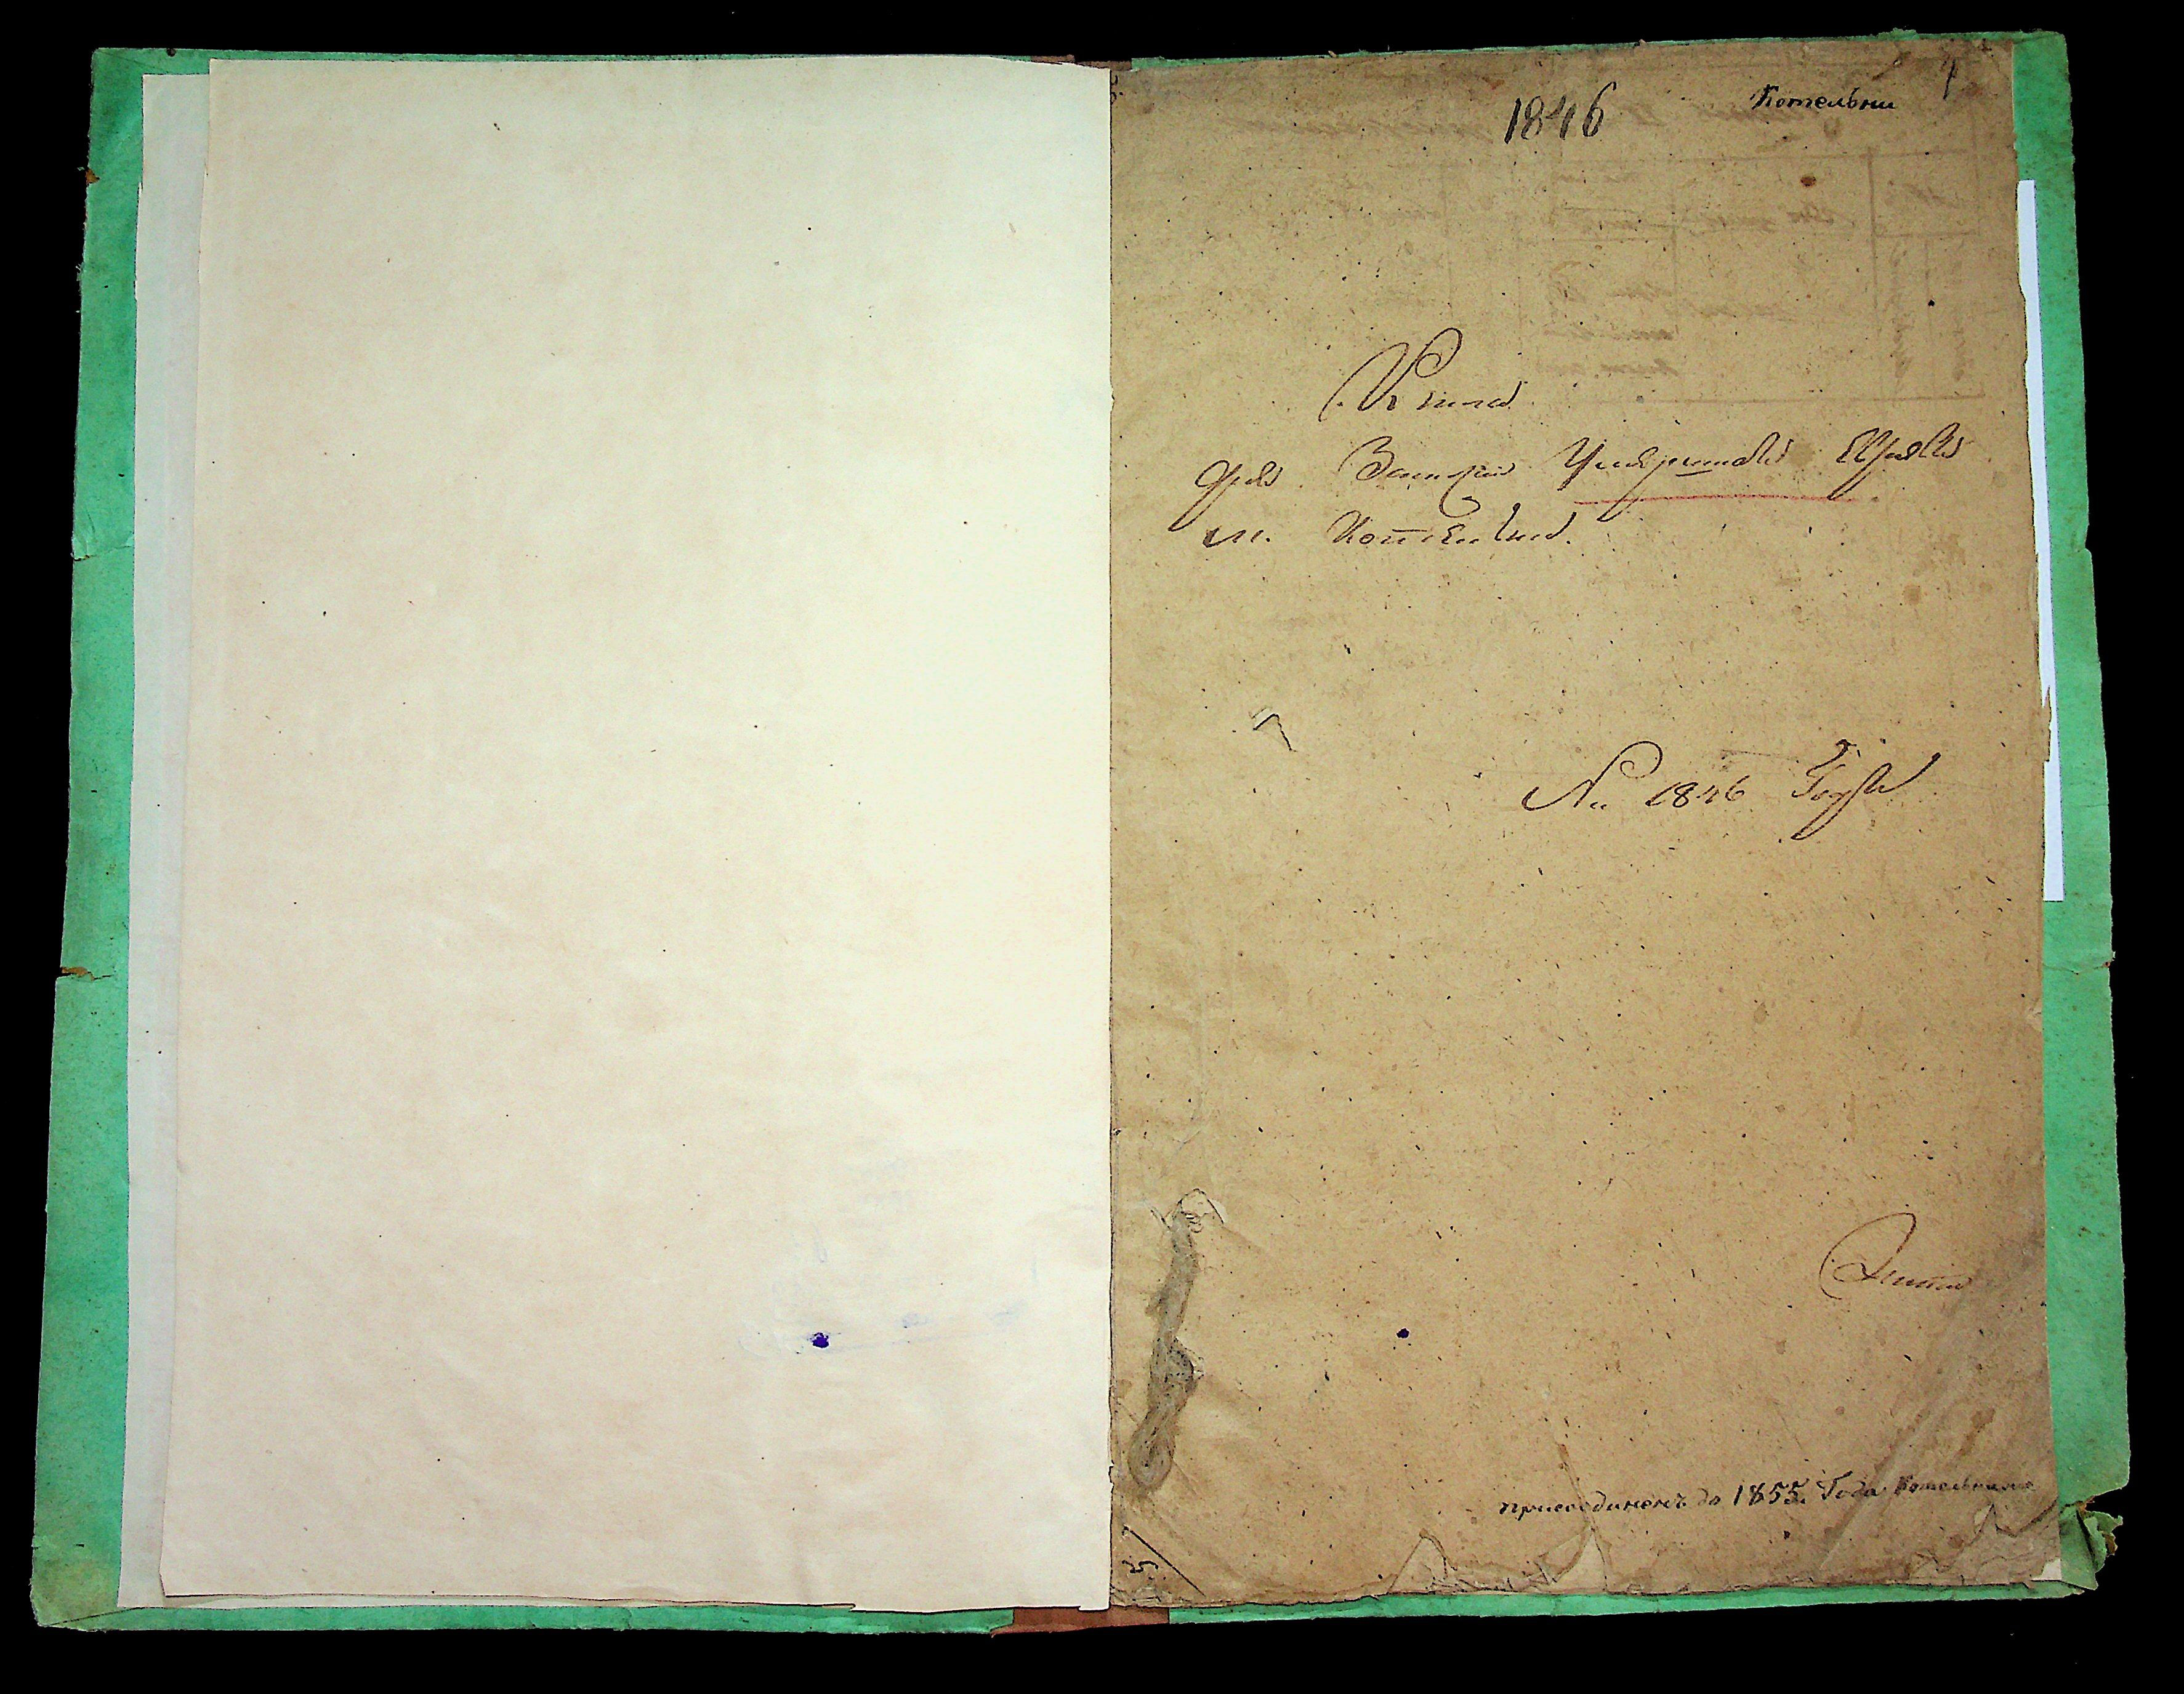 1846 Котельни 1
Книга
для Записки Умершихъ Евреевъ
м. Котельни.
На 1846 Годъ
присоединенъ до 1855 Года Котельнина